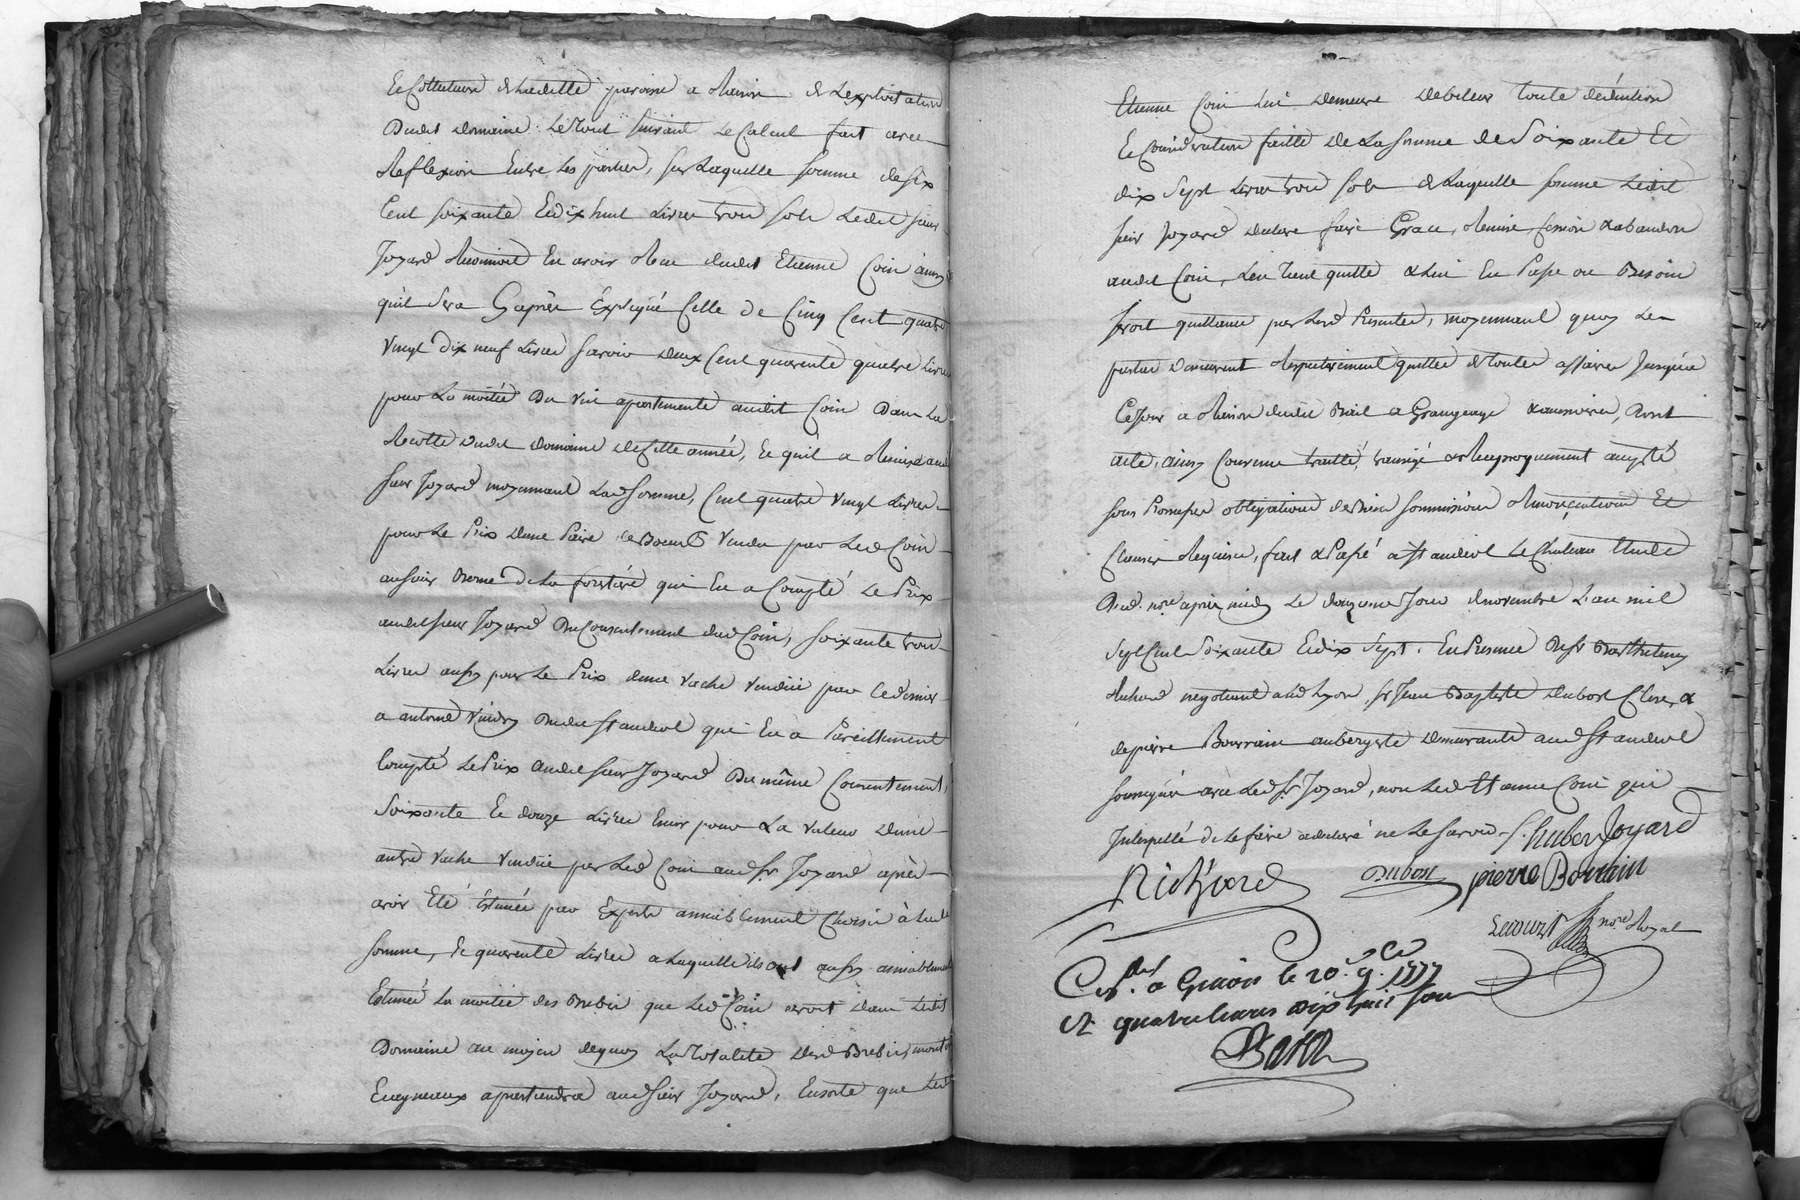 Et Collecteurs de ladelle paroisse a Raison de Lexploitation
Dudit Domaine Le Tout suivant Le Calcul fait avec
Reflexion Entre Les parties, sur Laquelle somme de six
Cent soixante Et dix huit Livres trois sols Ledit sieur
Joyard Reconnoit En avoir Reçu dudit Etienne Coin ainsy
qu'il sera Cy après Expliqué Celle de Cinq Cent quatre
Vingt dix neuf Livres savoir deux Cent quarente quatre Livres
pour La moitié Du vin apartenante audit Coin Dans La
Recolte dudit Domaine de Cette année, Et qu'il a Remise aud
sieur Joyard moyennant Lad somme, Cent quatre Vingt Livres
pour Le Prix d'une Paire de Boeufs Vendu par Led Coin
au sieur De La foretière qui En a Compté Le Prix
audit sieur Joyard Du Consentement dud Coin, soixante trois
Livres aussy pour Le Prix d'une Vache Vendüe par Ce dernier
a antoine Dudit St andeol qui En a Pareillement
Compté Le Prix Audit sieur Joyard Du même Consentement,
Soixante Et douze Livres pour La Valeur d'une
autre Vache Vendüe par Led Coin aud Sr Joyard après
avoir Eté Estimée par Experts amiablement Choisis à lad
somme, Et quarente Livres a Laquelle ils ont aussy amiablement
Estimé La moitié des Brebis que Led Coin avoit dans Ledit
Domaine au moyen dequoy La Totalité desd Brebis moutons
Et agneaux apartiendra aud sieur Joyard, Ensorte que Led
Etienne Coin Lui demeure debiteur toute déduction
Et Considération faitte de La somme de Soixante Et
dix Sept Livres trois sols de Laquelle somme Ledit
sieur Joyard declare faire Grace, Remise, Cession & abandon
audit Coin, L'en Tient quitte & Lui En Passe au Besoin
quittance par Lesd Presentes, moyennant quoy Les
parties demeurent Respectivement quittes de toutes affaires Jusqu'à
Ce Jour a Raison dudit Bail a Grangeage Dont
acte, ainsy Convenu traitté, transigé & Reciproquement accepté
sous Promesses obligations de Biens soumissions Renonciations Et
Clauses Requises, fait & Passé a St andeol Le Chateau Etude
Dud. nore après midy Le douzieme Jour de novembre L'an mil
Sept Cent Soixante Et dix Sept. En Presence De Sr Barthelemy
Richard negotiant a Lyon, Sr Jean Baptiste Dubost Clerc, &
de pierre Bourrain aubergiste demeurants aud St andeol
soussignés avec Led Sr Joyard, non Led Etienne Coin qui
Interpellé de Le faire a declaré ne Le savoir. J. huber Joyard
Richard Dubost pierre Bourain
nore Royal
a Givors le 20. 9.bre 1777
quatre livres dix huit sous